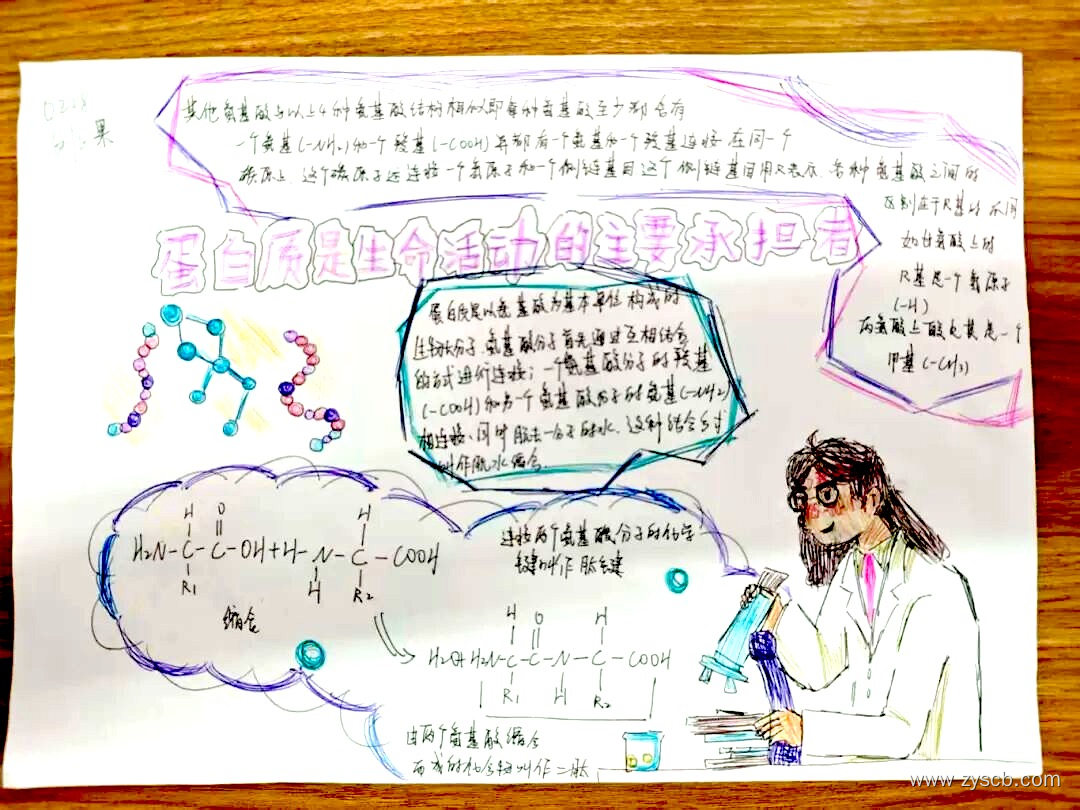 其他氨基酸与以上4种氨基酸结构相似即每种氨基酸至少都含有
一个氨基(-NH₂)和一个羧基(-COOH)并都有一个氨基和一个羧基连接在同一个
碳原上 这个碳原子还连接一个氢原子和一个侧链基团这个侧链基团用R表示.各种氨基酸之间的
区别在于R基的不同
如甘氨酸上的
R基是一个氢原子
(-H)
丙氨酸上的是一个
甲基(-CH₃)
蛋白质是生命活动的主要承担者
蛋白质是以氨基酸为基本单位构成的
生物大分子.氨基酸分子首先通过互相结合
的方式进行连接;一个氨基酸分子的羧基
(-COOH)和另一个氨基酸分子的氨基(-NH₂)
相连接、同时脱去一分子的水.这种结合方式
叫作脱水缩合.
H O H
H₂N-C-C-OH+H-N-C-COOH
R₁ H R₂
缩合
连接两个氨基酸分子的化学
键叫作肽键
H O H
H₂O+H₂N-C-C-N-C-COOH
R₁ H R₂
由两个氨基酸缩合
而成的化合物叫作二肽
www.zyscb.com